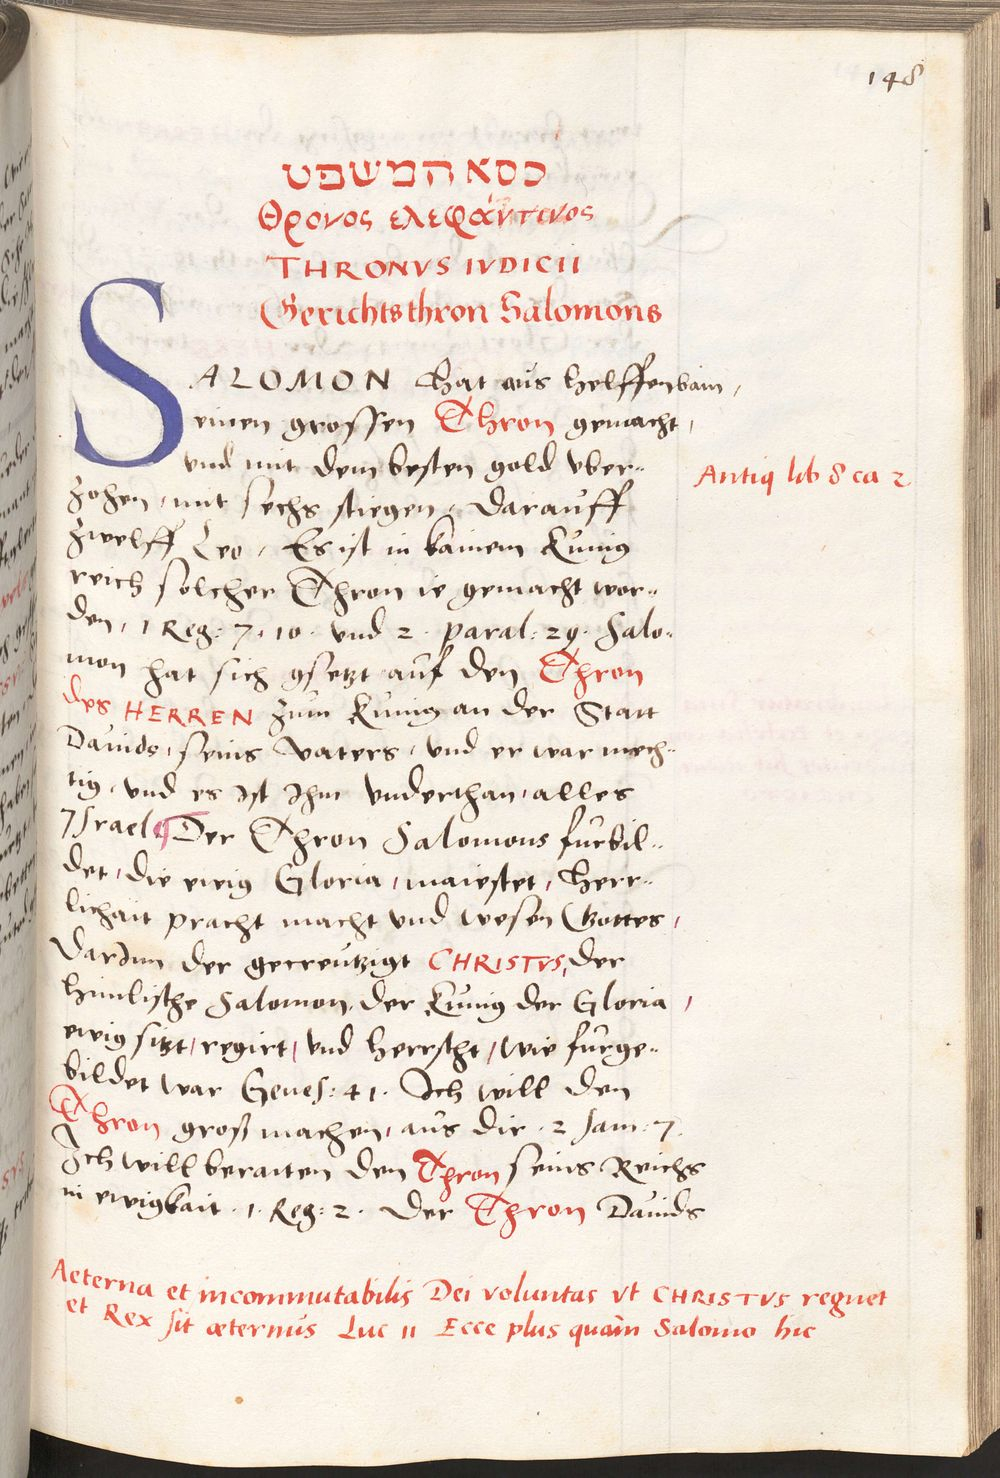 148
כסא המשפט
Θρονος ελεφάντινος
THRONVS IVDICII
Gerichtsthron Salomons
SALOMON hat aus helffenbain,
einen grossen Thron gemacht,
vnd mit dem besten gold vber-
zohen, mit sechs stiegen, darauff
zwelff Leo, Es ist in kainem Kunig
reich solcher Thron ie gemacht wor-
den, 1 Reg: 7. 10. vnd 2. paral: 29. Salo-
mon hat sich gsetzt auf den Thron
des HERREN zum Kunig an der Statt
Dauids, seins vaters, vnd er war mech-
tig, vnd es ist Ihm vnderthan, alles
Israel Der Thron Salomons furbil-
det, die ewig Gloria, maiestet, Herr-
lichait pracht macht vnd wesen Gottes,
darJnn der gecreutzigt CHRISTVS, der
himlische Salomon, der Kunig der Gloria,
ewig sitzt, regirt, vnd herrscht, wie furge-
bildet war Genes: 41. Ich will den
Thron groß machen, aus dir. 2 Sam: 7.
Ich will beraiten den Thron seins Reichs
in ewigkait. 1. Reg: 2. Der Thron Dauids
Antiq lib 8 ca 2
Aeterna et incommutabilis Dei voluntas vt CHRISTVS regnet
et Rex sit æternus Luc 11 Ecce plus quam Salomo hic